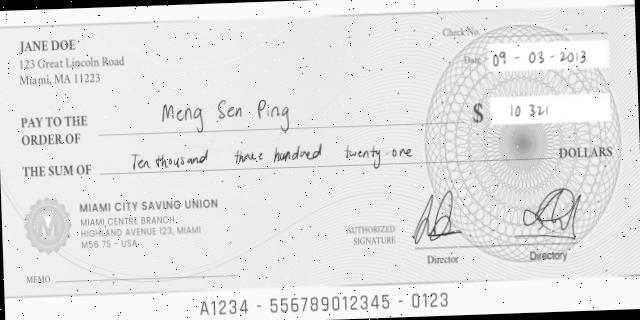 JANE DOE
123 Great Lincoln Road
Miami, MA 11223
Check No.
Date 09 - 03 - 2013
PAY TO THE ORDER OF Meng Sen Ping
$ 10 321
THE SUM OF Ten thousand three hundred twenty-one DOLLARS
MIAMI CITY SAVING UNION
MIAMI CENTRE BRANCH,
HIGHLAND AVENUE 123, MIAMI
M56 7S - USA
AUTHORIZED SIGNATURE
Director
Directory
MEMO
A1234 - 556789012345 - 0123